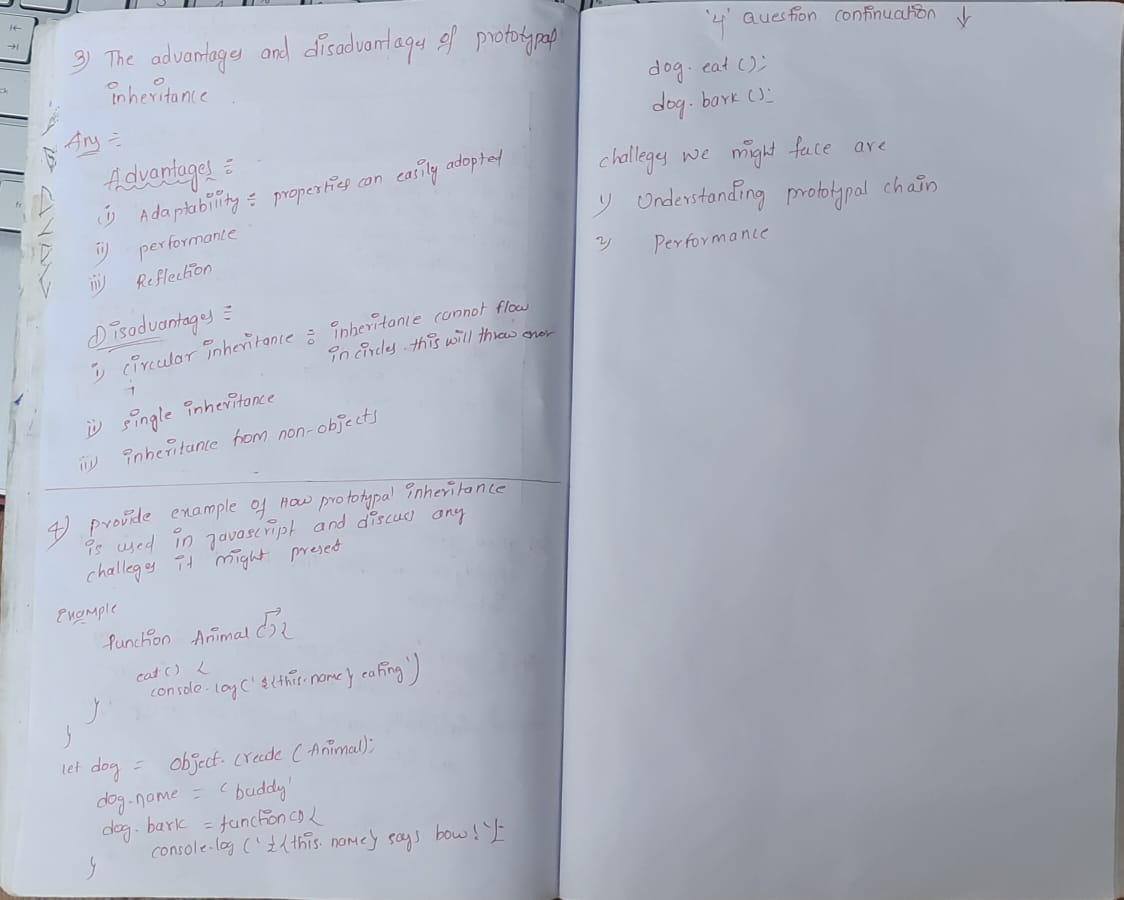 3) The advantages and disadvantages of prototypal
inheritance
Ans :-
Advantages :-
(i) Adaptability :- properties can easily adopted
ii) performance
iii) Reflection
Disadvantages :-
i) circular inheritance : inheritance cannot flow
in circles. this will throw error
ii) single inheritance
iii) inheritance from non-objects
4) provide example of How prototypal inheritance
is used in Javascript and discuss any
challeges it might preset
Example
function Animal () {
eat() {
console.log(' ${this.name} eating')
}
}
let dog = object.create (Animal);
dog.name = 'buddy'
dog.bark = function() {
console.log (' ${this.name} says bow!');
}
'4' Question continuation ↓
dog.eat ();
dog.bark ();
challeges we might face are
1) Understanding prototypal chain
2) Performance